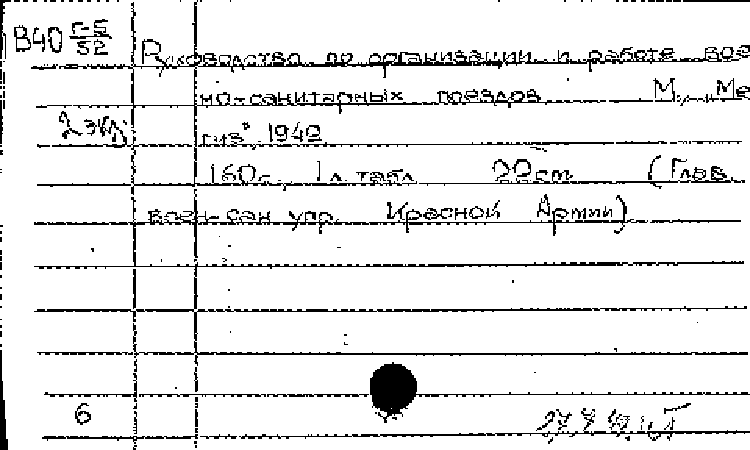 В40 Г-5
52
Руководство по организации и работе вое
но-санитарных поездов М., „Ме
2 экз. гиз",
160с., 1 л. табл. 22 cm (Глав.
воен-сан упр. Красной Армии)
6